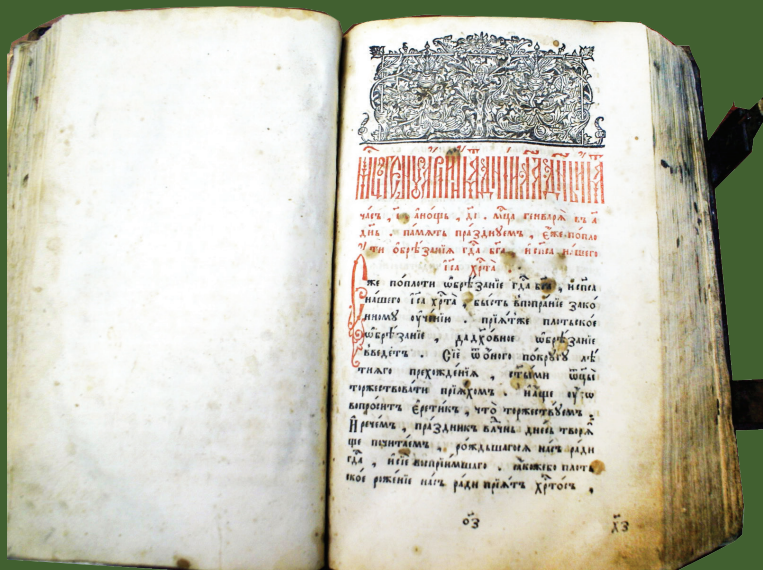 часъ, і҃. а нощь, д҃і. мⷭ҇ца генваря̀ въ а҃
днь. па́мять пра́зднуемъ. є҆́же попло
ти ѻ҆брѣ́занїя гдⷭ҇а бг҃а и҆ сп҃са на́шего
і҆и҃са хрⷭ҇та̀.
Є҆́же попло́ти ѡ҆брѣ́занїе гдⷭ҇а бг҃а, и҆ сп҃са
на́шего і҆и҃са хрⷭ҇та̀, бы́сть впопра́нїе зако́
нному оу҆че́нїи. прїѧ́тже пло́тьское
ѡ҆брѣ́занїе, да дꙋхо́вное ѡ҆брѣ́занїе
введе́тъ. Сїѐ ѿ о́ного покрꙋгꙋ лѣ́
тняго прехожде́нїя, ст҃ы́ми ѿц҃ы̀
торжествова́ти прїѧ́хомъ. на́ше
вопро́ситъ є҆рети́къ, что̀ торжествꙋ́емъ.
И҆ рече́мъ, пра́здникъ дне́сь творѧ́
ще почита́емъ. ро́ждьшагося на́съ ра́ди
гдⷭ҇а, и҆ сїѐ выпрїи́мшаго. ꙗ҆́коже бо пло́ть
ское роже́нїе на́съ ра́ди прїѧ́тъ хрⷭ҇то́съ,
о҃з х҃з